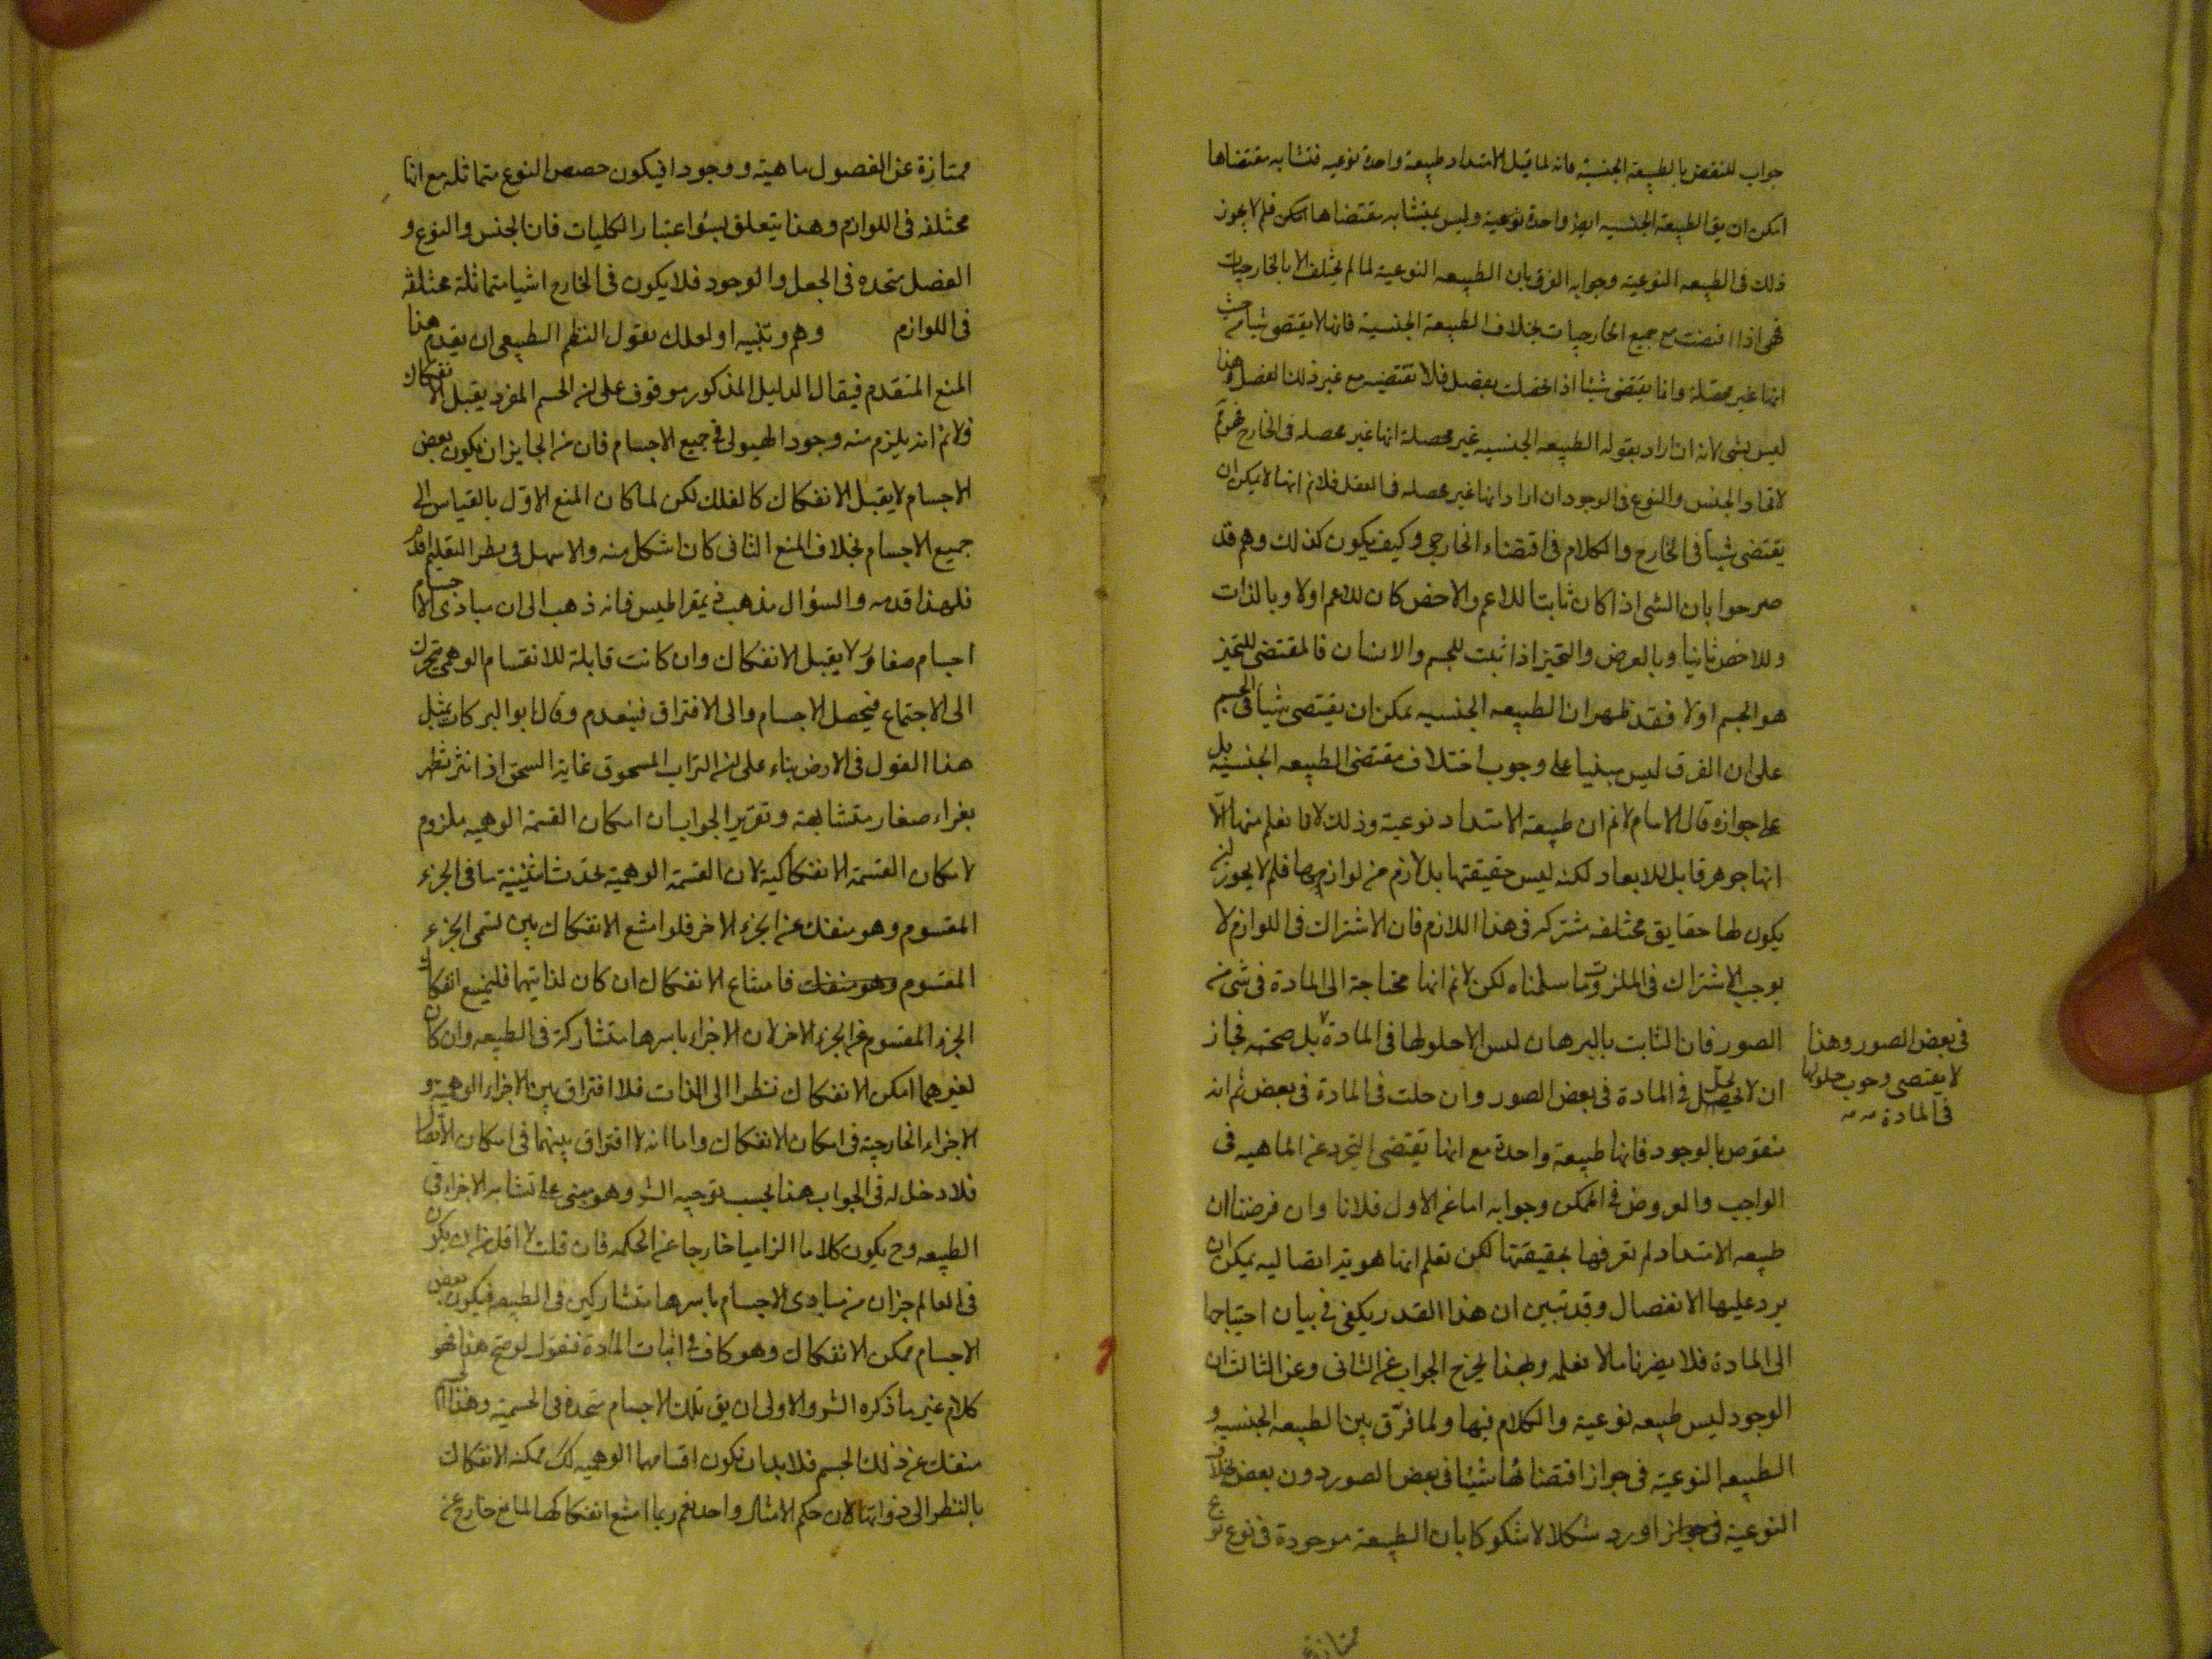 جواب للنقض بالطبيعة الجنسية فانه لما قيل الامتداد طبيعة واحدة نوعيه فتشابه مقتضاها
امكن ان يق الطبيعة الجنسيه ايض واحدة نوعية وليس بمتشابه مقتضاها امكن فلم لا يجوز
ذلك فى الطبيعه النوعية وجوابه الفرق بان الطبيعه النوعية لما لم يختلف الا بالخارجيات
فهى اذا اقتضت مع جميع الخارجيات بخلاف الطبيعة الجنسية فانها لا يقتضى شيا من حيث
انها غير محصلة وانما يقتضى شيئا اذا تحصلت بفصل فلا تقتضيه مع غير ذلك الفصل وهذا
ليس بشى لانه ان اراد بقوله الطبيعه الجنسيه غير محصلة انها غير محصله فى الخارج فهو تم
لاتحاد الجنس والنوع فى الوجود ان اراد انها غير محصله فى العقل فلانم انها لا يمكن ان
يقتضى شيأ فى الخارج والكلام فى اقتضاء الخارجى وكيف يكون كذلك وهم قد
صرحوا بان الشى اذا كان ثابتا للاعم والاخص كان للاعم اولا وبالذات
وللاخص ثانيا وبالعرض والتحيز اذا ثبت للجسم والانسان فالمقتضى للتحيز
هو الجسم اولا فقد ظهر ان الطبيعه الجنسيه يمكن ان يقتضى شيأ فى الجسم
على ان الفرق ليس مبنيا على وجوب اختلاف مقتضى الطبيعه الجنسية بل
على جوازه قال الامام لانم ان طبيعة الامتداد نوعية وذلك لانا نعلم منها الا
انها جوهر قابل للابعاد لكنه ليس حقيقتها بل لازم من لوازمها فلم لا يجوز ان
يكون لها حقايق مختلفه مشتركه فى هذا اللازم فان الاشتراك فى اللوازم لا
يوجب الاشتراك فى الملزومات سلمناه لكن لانم انها محتاجة الى المادة فى شى من
الصور فان الثابت بالبرهان ليس الا حلولها فى المادة لا بل صحته فجاز
ان لا يحصل يحل فى المادة فى بعض الصور وان حلت فى المادة فى بعض ثم انه
منقوض بالوجود فانها طبيعة واحدة مع انها تقتضى التجرد عن الماهيه فى
الواجب والعروض فى الممكن وجوابه اما عن الاول فلانا وان فرضنا ان
طبيعه الامتداد لم نعرفها بحقيقتها لكن نعلم انها هوية اتصاليه يمكن ان
يرد عليها الانفصال وقد تبين ان هذا القدر يكفى فى بيان احتياجها
الى المادة فلا يضرنا ما لا نعلمه وبهذا يخرج الجواب عن الثانى وعن الثالث ان
الوجود ليس طبيعه نوعية والكلام فيها ولما فرّق بين الطبيعه الجنسيه و
الطبيعه النوعية فى جواز اقتضائها شيئا فى بعض الصور دون بعض بخلاف
النوعية فى جواز اورد شكلا لا شكوكا بان الطبيعة موجودة فى نوع نوع
فى بعض الصور وهذا
لا يقتضى وجوب حلولها
فى المادة مه مه
ممتازة
ممتازة عن الفصول ماهية ووجودا فيكون حصص النوع متماثله مع انها
مختلفه فى اللوازم وهذا يتعلق بسوء اعتبار الكليات فان الجنس والنوع و
الفصل متحده فى الجعل والوجود فلا يكون فى الخارج اشيا متماثلة مختلفة
فى اللوازم وهم وتنبيه او لعلك تقول النظم الطبيعى ان يقدم هذا
المنع المتقدم فيقال الدليل المذكور موقوف على ان الجسم المفرد يقبل الانفكاك
ولانم انه يلزم منه وجود الهيولى فى جميع الاجسام فان من الجايز ان يكون بعض
الاجسام لا يقبل الانفكاك كالفلك لكن لما كان المنع الاول بالقياس الى
جميع الاجسام بخلاف المنع الثانى كان اشكل منه والاسهل فى نظر التعليم اقدم
فلهذا قدمه والسؤال مذهب ذيمقراطيس فانه ذهب الى ان مبادى الاجسام
اجسام صغار لا يقبل الانفكاك وان كانت قابلة للانقسام الوهمى يتحرك
الى الاجتماع فيحصل الاجسام والى الافتراق فينعدم وقال ابو البركات بمثل
هذا القول فى الارض بناء على ان التراب المسحوق غاية السحق اذا نثر تظهر
بغراء صغار متشابهة وتقرير الجواب ان امكان القسمة الوهميه ملزوم
لامكان القسمة الانفكاكية لان القسمة الوهمية تحدث اثنينية ما فى الجزء
المقسوم وهو منفك عن الجزء الاخر فلو امتنع الانفكاك بين قسمى الجزء
المقسوم وهو منفك فامتناع الانفكاك ان كان لذاتيهما فليمتنع انفكاك
الجزء المقسوم عن الجزء الاخر لان الاجزاء باسرها متشاركة فى الطبيعه وان كان
لغيرهما امكن الانفكاك نظرا الى الذات فلا افتراق بين الاجزاء الوهمية و
الاجزاء الخارجية فى امكان الانفكاك واما انه لا افتراق بينهما فى امكان الاتصال
فلا دخل له فى الجواب هذا بحسب توجيه الش وهو مبنى على تشابه الاجزاء فى
الطبيعه وح يكون كلاما الزاميا خارجا عن الحكمه فان قلت لا اقل من ان يكون
فى العالم جزان من مبادى الاجسام باسرها متشاركين فى الطبيعه فيكون بعض
الاجسام ممكن الانفكاك وهو كاف فى اثبات المادة فنقول لو صح هذا فهو
كلام غير ما ذكره الش والاولى ان يق تلك الاجسام متحدة فى الجسمية وهذا
منفك عن ذلك الجسم فلا بد ان تكون اقسامها الوهميه كك ممكنه الانفكاك
بالنظر الى ذواتها لان حكم الامثال واحد نعم ربما امتنع انفكاكها لمانع خارج عن